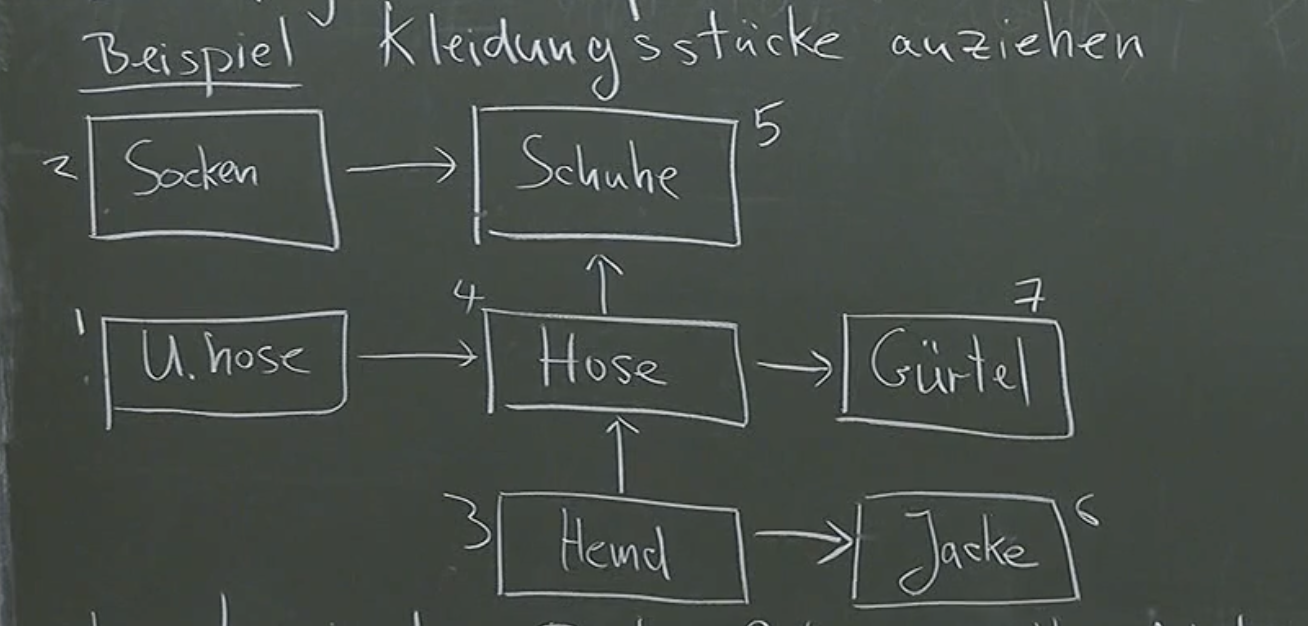 Beispiel Kleidungsstücke anziehen
2 Socken → Schuhe 5
↑
1 U.hose → 4 Hose → Gürtel 7
↑
3 Hemd → Jacke 6